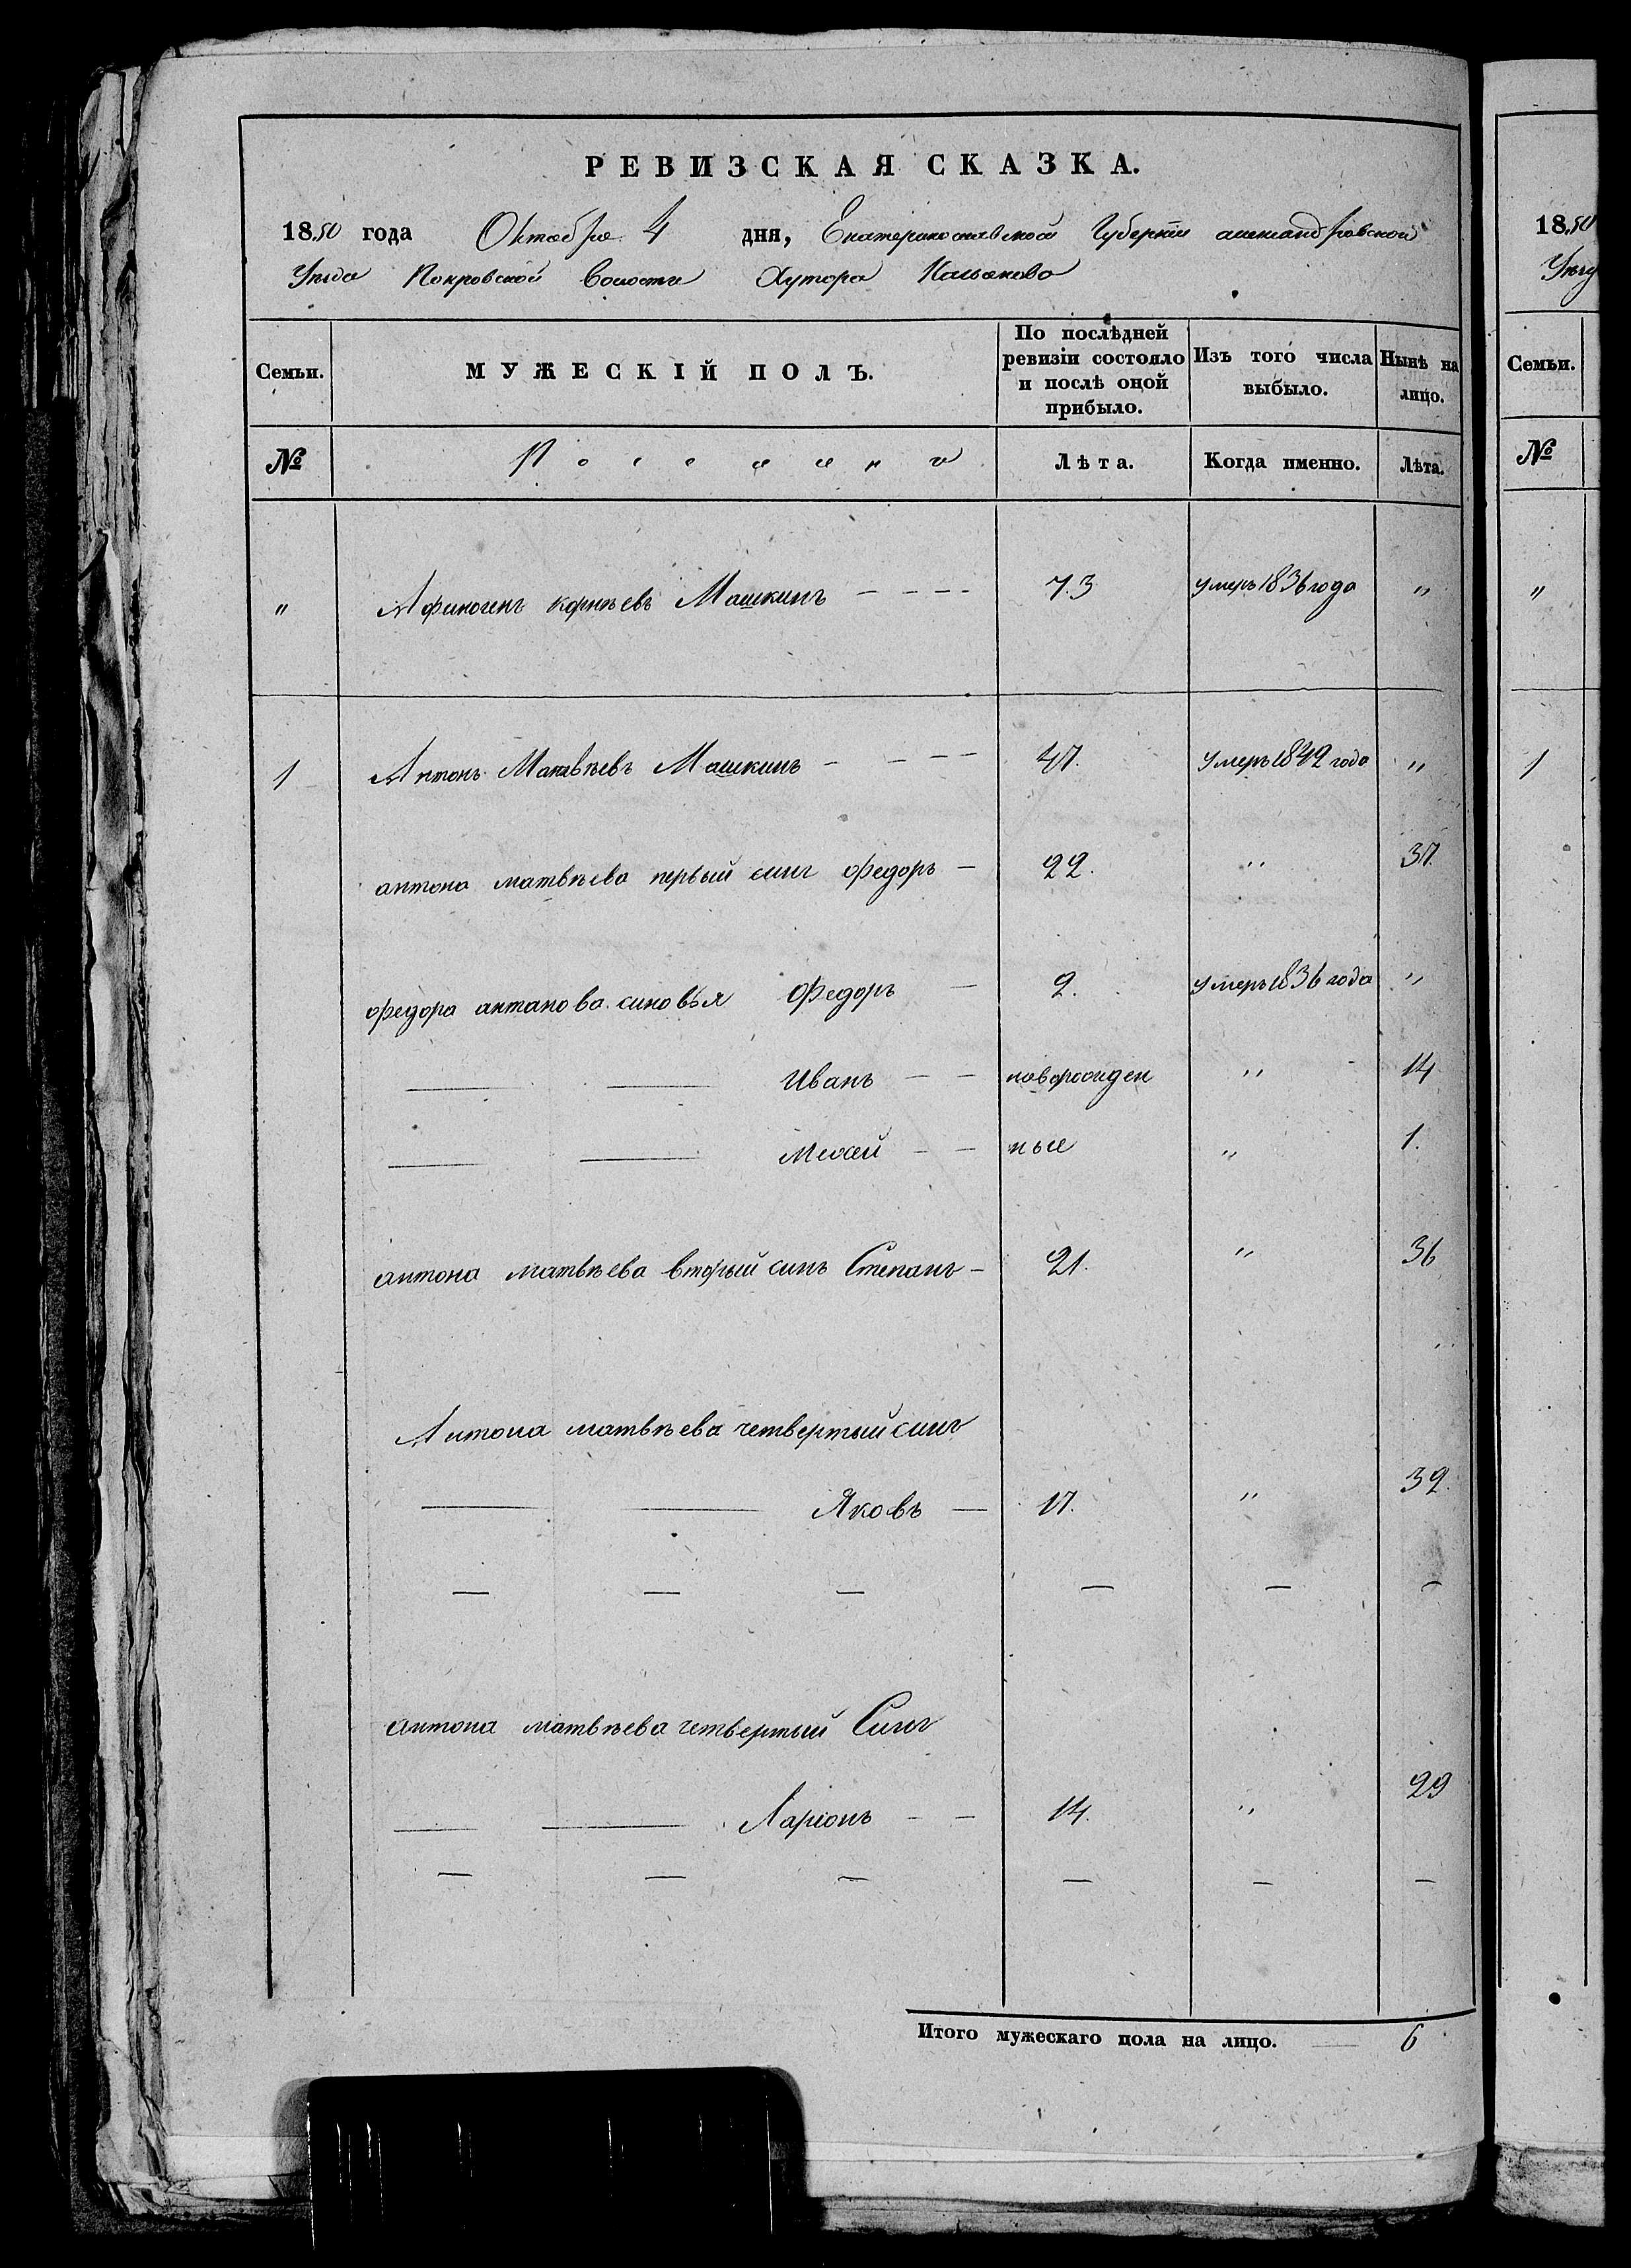 РЕВИЗСКАЯ СКАЗКА.
1850 года Октября 4 дня, Екатеринославской Губернiи александровской
Уезда Покровской Волости Хутора
Семьи. МУЖЕСКІЙ ПОЛЪ. По послѣдней ревизіи состояло и послѣ оной прибыло. Изъ того числа выбыло. Нынѣ на лицо.
№ Поселяне Лѣта. Когда именно. Лѣта.
" Афиногенъ корнѣевъ Машкинъ 73 умеръ 1836 года "
1 Антонъ Матвѣевъ Машкинъ 47. умеръ 1849 года "
антона матвѣева первый синъ Федоръ 22. " 37
федора антанова синовья Федоръ 2. умеръ 1836 года "
Иванъ новорожден " 14
ные " 1.
антона матвѣева вторый синъ Степанъ 21. " 36
Антона матвѣева четвертый синъ
Яковъ 17. " 32.
антона матвѣева четвертый Синъ
Ларіонъ 14. " 29
Итого мужескаго пола на лицо. 6
1850
Уезд
Семьи.
№
"
1